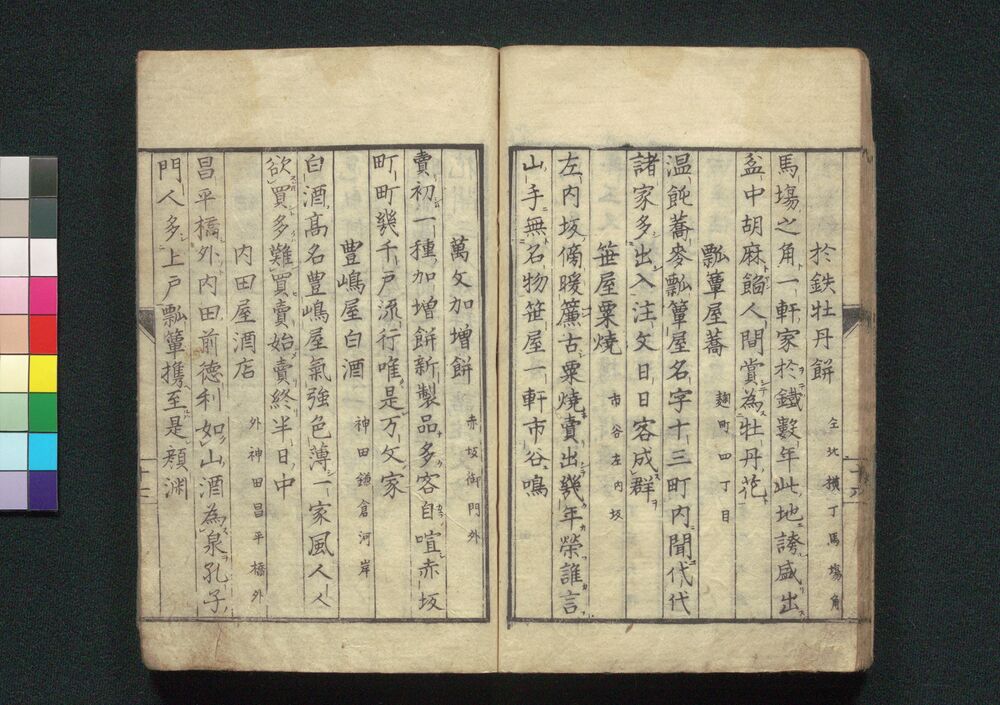 於鉄牡丹餅 仝北横丁馬塲角
馬塲之角一軒家於鐡數年此地誇盛出
盆中胡麻餡人間賞為牡丹花
瓢簞屋蕎 麹町四丁目
温飩蕎麥瓢簞屋名字十三町内聞代代
諸家多出入注文日日客成群
笹屋粟焼 市谷左内坂
左内坂傍暖簾古粟焼賣出幾年榮誰言
山手無名物笹屋一軒市谷鳴
萬文加増餅 赤坂御門外
賣初一種加増餅新製品多客自喧赤坂
町町幾千戸流行唯是万文家
豊嶋屋白酒 神田鎌倉河岸
白酒髙名豊嶋屋氣強色薄一家風人人
欲買多難買賣始賣終半日中
内田屋酒店 外神田昌平橋外
昌平橋外内田前德利如山酒為泉孔子
門人多上戸瓢簞攜至是顔淵